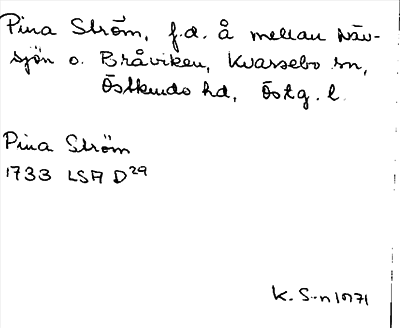 Pina Ström, f.d. å mellan Näv-
sjön o. Bråviken, Kvarsebo sn,
Östkinds hd, Östg. l.
Pina Ström
1733 LSA D29
K. S-n 1971